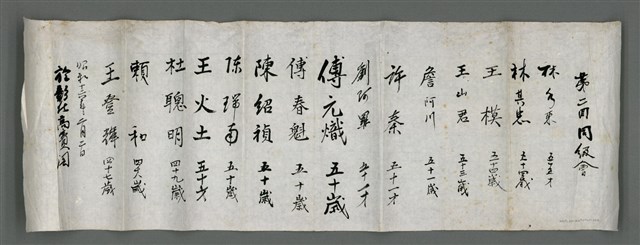 第二回同級會
林
林其忠 五十四歲
王模 五十四歲
王山君 五十三歲
詹阿川 五十一歲
許秦 五十一才
劉阿畢 五十一才
傅元熾 五十歲
傅春魁 五十歲
陳紹禎 五十歲
陳 五十歲
王火土 五十才
杜聰明 四十九歲
賴和 四十八歲
王登 四十七歲
昭和十六年二月二日
於彰化高賓閣